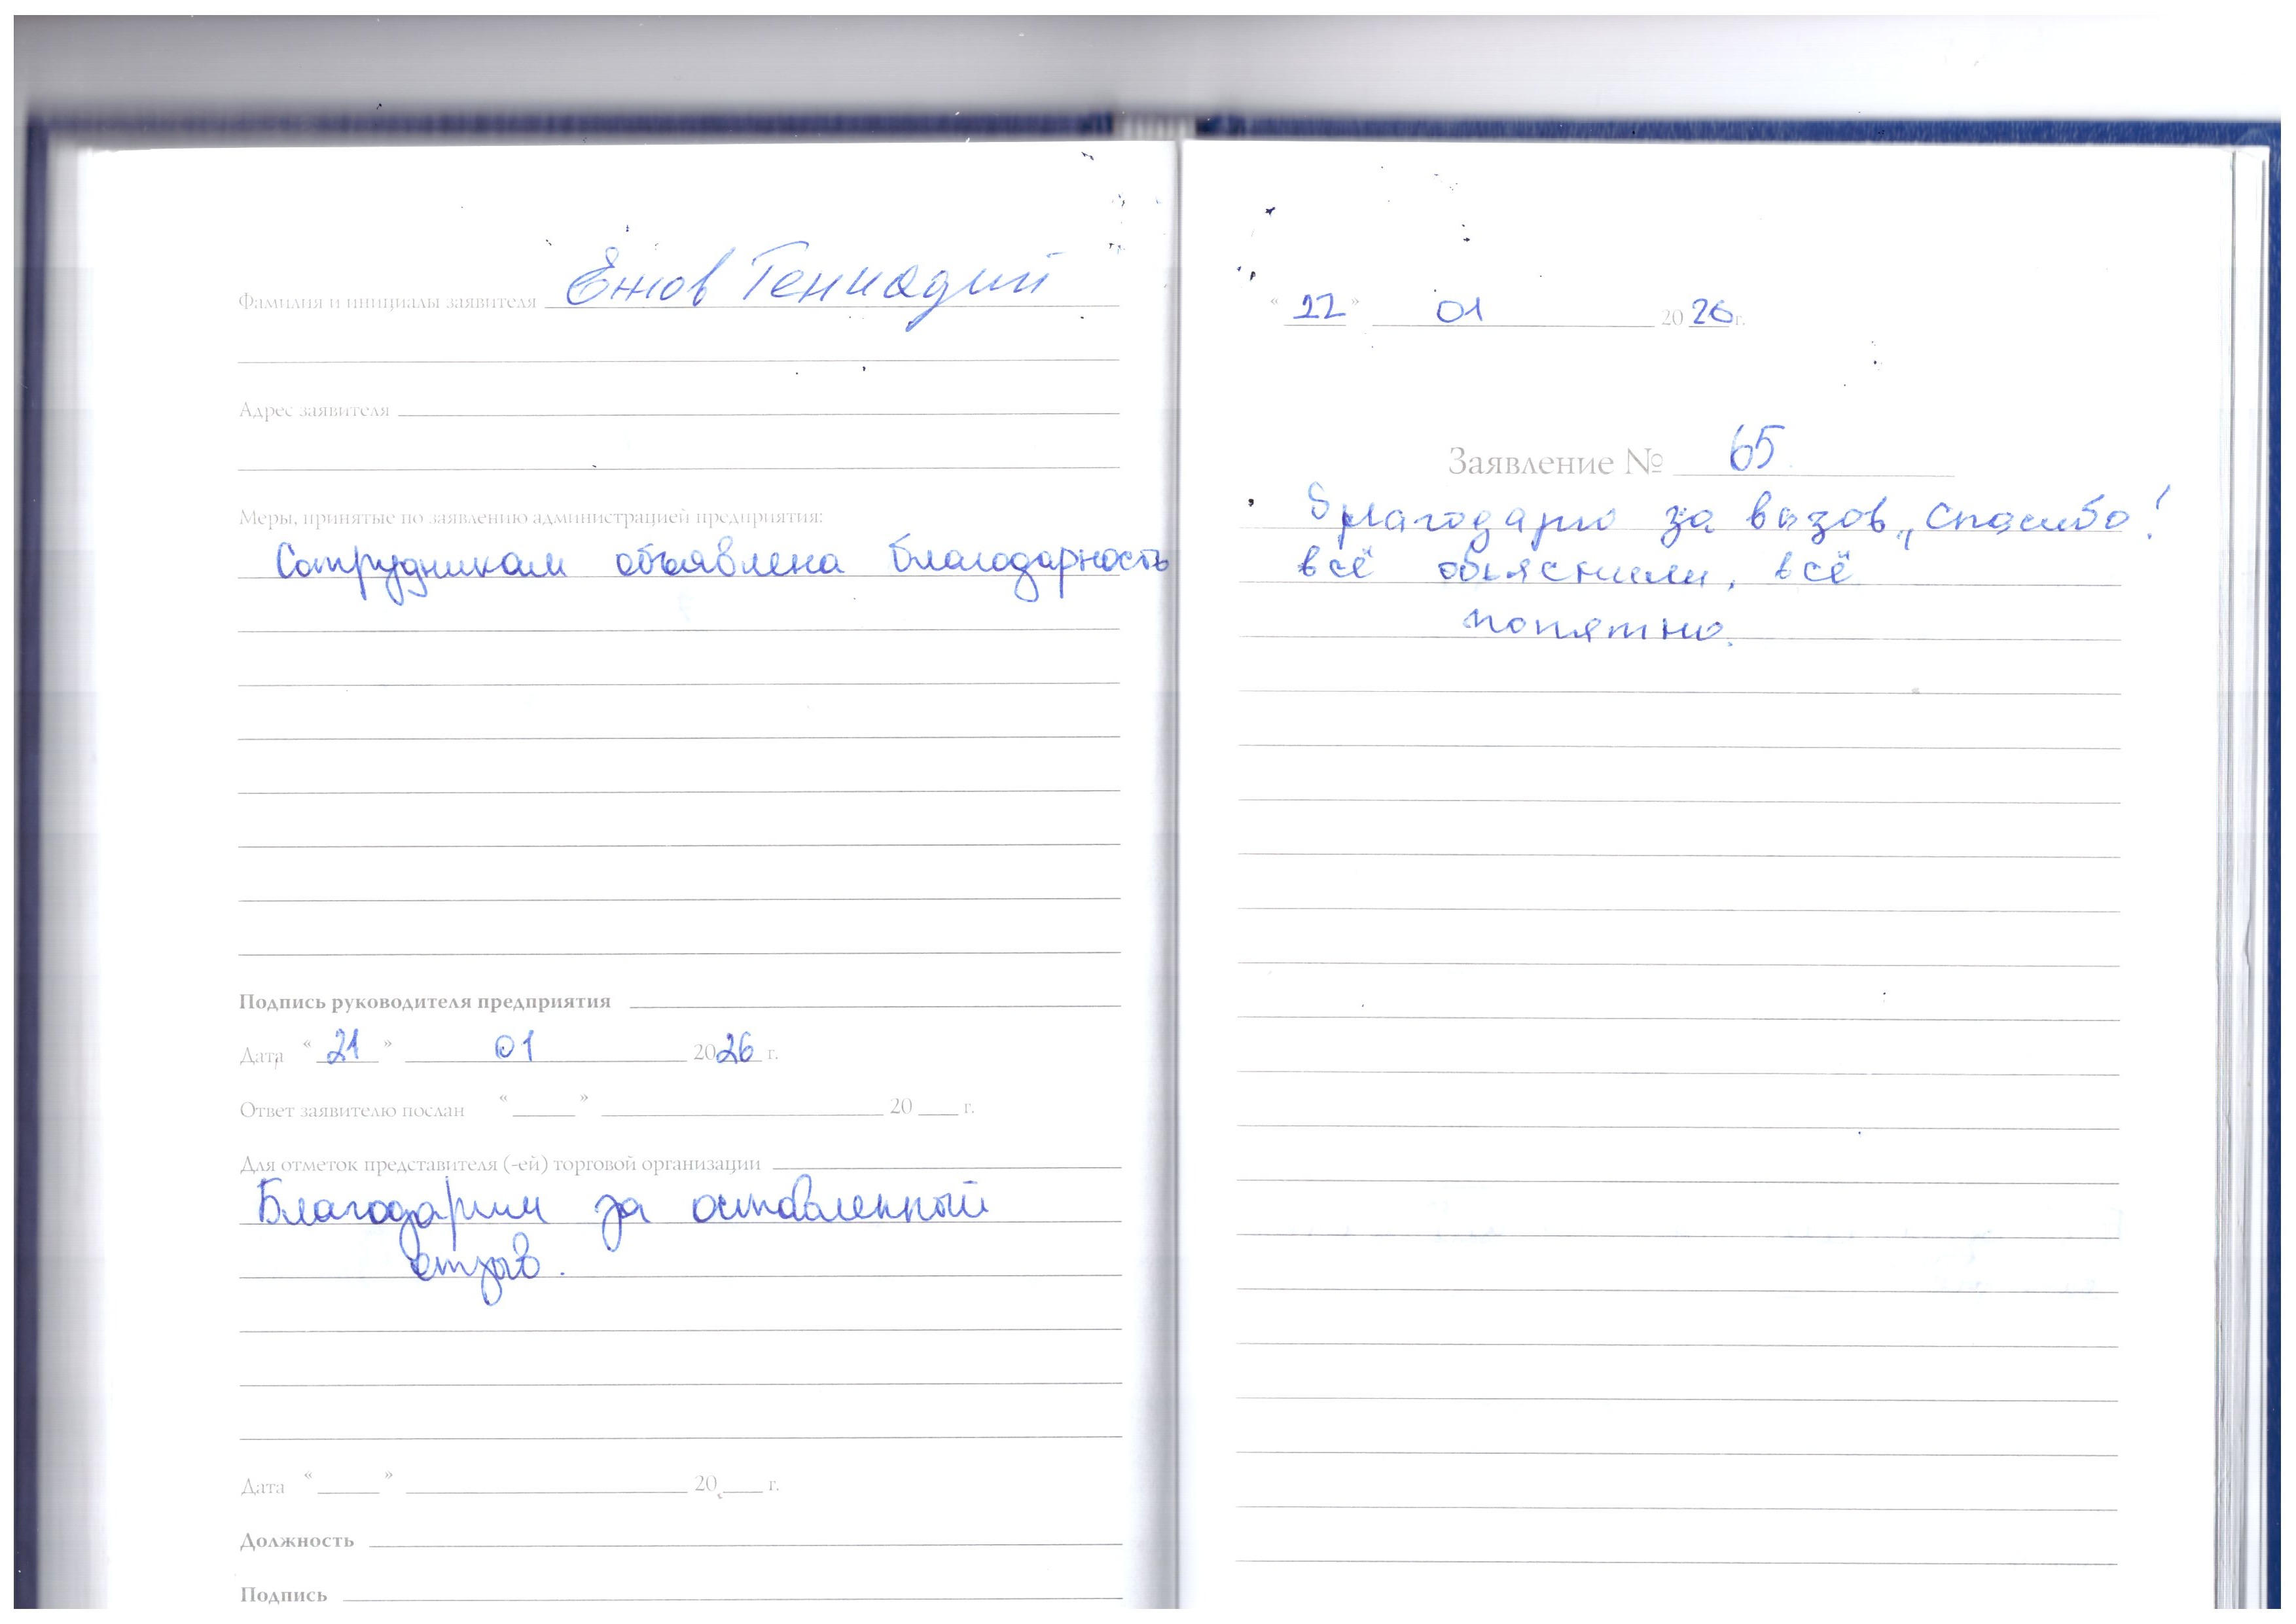 Фамилия и инициалы заявителя Ежов Геннадий
Адрес заявителя
Меры, принятые по заявлению администрацией предприятия:
Сотрудникам объявлена благодарность
Подпись руководителя предприятия
Дата « 21 » 01 2026 г.
Ответ заявителю послан « » 20 г.
Для отметок представителя (-ей) торговой организации
Благодарим за оставленный
отзыв.
Дата « » 20 г.
Должность
Подпись
« 22 » 01 2026 г.
Заявление № 65
Благодарю за вызов, спасибо!
всё объяснили, всё
понятно.